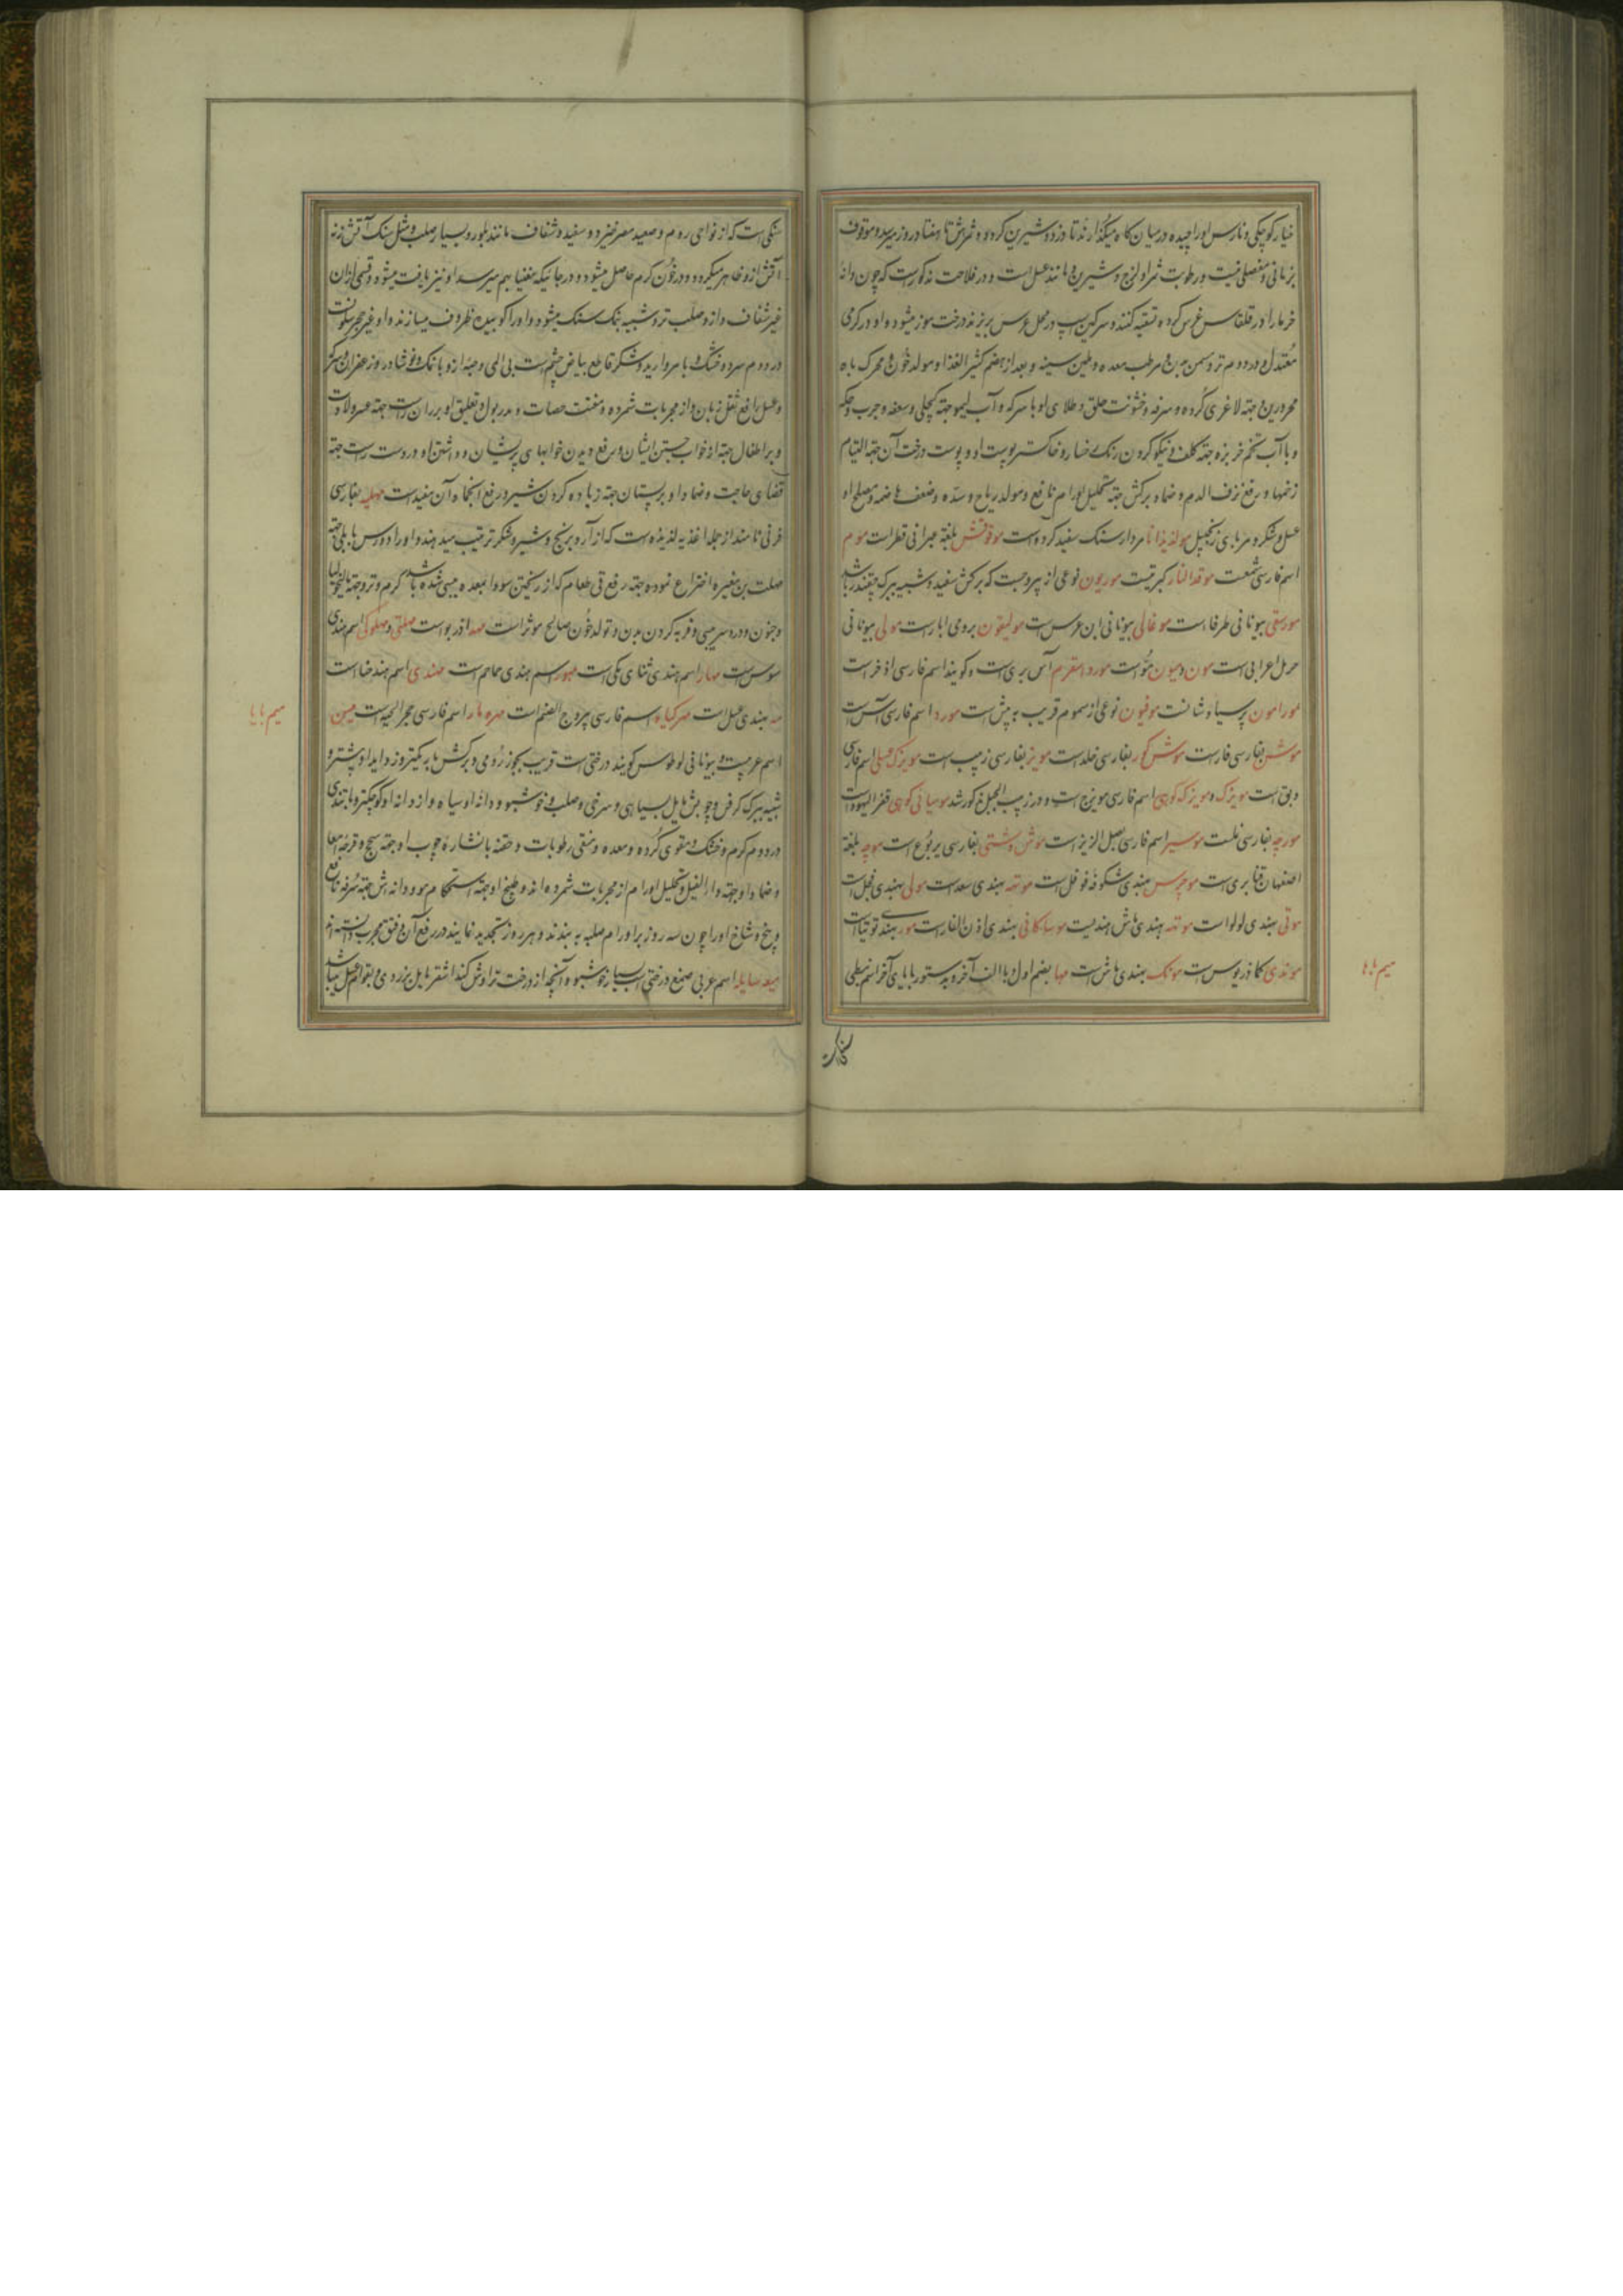 خیار کوچکی و نارس او را چیده در میان کاه میگذارند تا زرد و شیرین گردد و ثمرش تا هفتاد روز میرسد و موقوف
بزمانی و فصلی نیست و رطوبت ثمر او لزج و شیرین و مانند عسل است و در فلاحت مذکور است که چون دانه
خرما را در قلقاس غرس کرده تسقیه کنند و سرکین اسپ در محل غرس بریزند درخت موز میشود و او در کرمی
معتدل و در دوم تر و مسمن بدن و مرطب معده و ملین سینه و بعد از هضم کثیر الغذا و مولد خون و محرک باه
محرورین و جهته لاغری کرده و سرفه و خشونت حلق و طلای او با سرکه و آب لیمو جهته کچلی و سعفه و جرب و حکه
و با آب تخم خربزه جهته کلف و نیکو کردن رنک رخسار و خاکستر پوست او و پوست درخت آن جهته التیام
زخمها و رفع نزف الدم و ضماد برکش جهته تحلیل اورام نافع و مولد ریاح و سده و ضعف هاضمه و مصلح او
عسل و شکر و مربای زنجبیل مولدیدانا مردار سنک سفید کرده است موقونس بلغته عبرانی قطرانست موم
اسم فارسی شمعست موقد النار کبریتست موریون نوعی از یبروحست که برکش سفید و شبیه ببرک چقندر باشد
مورسقی بیونانی طرفا است موغالی بیونانی ابن عرس است مولیقون برومی ابار است مولی بیونانی
حرمل اعرابی است مون و میون مو است مورد اسفرم آس بری است و کویند اسم فارسی اذخر است
مورامون پرسیاوشانست موفیون نوعی از سموم قریب به بیش است مورد اسم فارسی آس است
موش بفارسی فار است موش کور بفارسی خلد است مویز بفارسی زبیب است مویزک عسلی اسم فارسی
دبق است مویزک و مویزک کوهی اسم فارسی میویزج است و در زبیب الجبل مذکور شد مومیائی کوهی قفر الیهود است
مورچه بفارسی نملست موسیر اسم فارسی بصل الزیز است موش دشتی بفارسی یربوع است موچه بلغته
اصفهان قنابری است موچرس بهندی شکوفه فوفل است موته بهندی سعد است مولی بهندی فجل است
موتی بهندی لولوا است موته بهندی ماش هندیست موساکانی بهندی اذن الفار است مور بهندی توتیا است
موندی کماذریوس است مونک بهندی ماش است مها بضم اول با الف آخر و بدستور با یای آخر اسم نبطی
میم با ها
سنکیست
سنکی است که از نواحی روم و صعید مصر خیزد و سفید و شفاف مانند بلور و بسیار صلب و مثل سنک آتش زنه
آتش از و ظاهر میکردد و در خون کرم حاصل میشود و در جائیکه مغنیا بهم میرسد او نیز یافت میشود و قسمی از ان
غیر شفاف و از و صلب تر و شبیه بنمک سنک میشود و او را کوبیده ظروف میسازند و او غیر حجر سلوانست
در دوم سرد و خشک و با مروارید و شکر قاطع بیاض چشم است بی المی و حبه از و با نمک و نوشادر و زعفران و سرکه
و عسل رافع ثقل زبان و از مجربات شمرده و مفتت حصات و مدر بول و تعلیق او بر ران راست جهته عسر ولادت
و بر اطفال جهته از خواب جستن ایشان و رفع دیدن خوابهای پریشان و داشتن او در دست راست جهته
قضای حاجت و ضماد او بر پستان جهته زیاده کردن شیر و رفع انجماد آن مفید است مهلبیه بفارسی
فرنی نامند از جمله اغذیه لذیذه است که از آرد برنج و شیر و شکر ترتیب میدهند و او را دورس بابلی جهته
مهلت بن مغیره اختراع نموده جهته رفع قی طعام که از ریختن سودا بمعده میبوده باشد کرم و تر و جهته مالیخولیا
و جنون و درد سر یبسی و فربه کردن بدن و تولد خون صالح موثر است مهد اذربو است مهلتی و مهلوکی اسم هندی
سوس است مهار اسم هندی ثنای مکی است مهور اسم هندی حماحم است مهندی اسم هند حنا است
مد بهندی عسل است مهر کیاه اسم فارسی یبروج الصنم است مهره مار اسم فارسی حجر الحیه است میس
میم با یا
اسم عربیست و بیونانی لوطوس کویند درختی است قریب بجوز رومی و برکش باریکتر و زواید او بیشتر و
شبیه ببرک کرفس و چوبش مایل بسیاهی و سرخی و صلب و خوشبو و دانه او سیاه و از دانه او کوچکتر و با تندی
در دوم کرم و خشک و مقوی کرده و معده و منقی رطوبات و حقنه با نشاره چوب او جهته سحج و قرحه امعا
و ضماد او جهته داء الفیل و تحلیل اورام از مجربات شمرده اند و طبیخ او جهته استحکام مو و دانه اش جهته سرفه نافع
و بیخ و شاخ او را چون سه روز بر اورام صلبه به بندند و هر روز تجدید نمایند در رفع آن و فتق مجرب دانسته اند
میعه سایله اسم عربی صمغ درختی است بسیار خوشبو و آنچه از درخت تراوش کند اشقر مایل بزردی و بقوام عسل میباشد